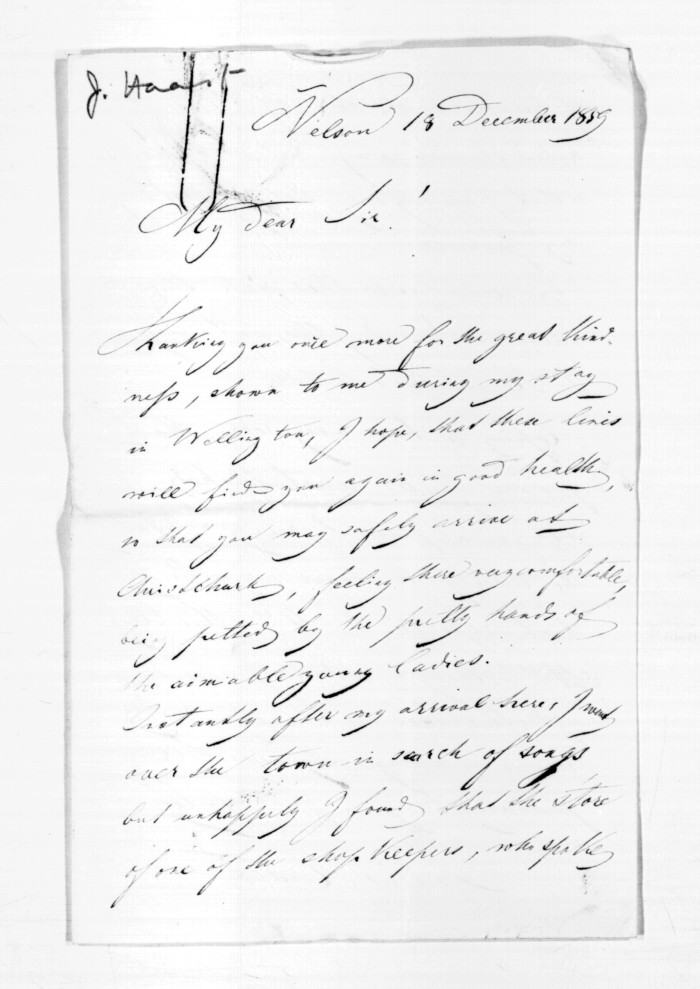 J. Haast
Nelson 18 December 1859
My dear Sir!
Thanking you once more for the great kind-
ness, shown to me during my stay
in Wellington, I hope, that these lines
will find you again in good health,
so that you may safely arrive at
Christchurch, feeling there very comfortable,
being petted by the pretty hands of
the aimiable young Ladies.
Instantly after my arrival here, I went
over the town in search of songs
but unhappily I found, that the store
of one of the shopkeepers, who spoke